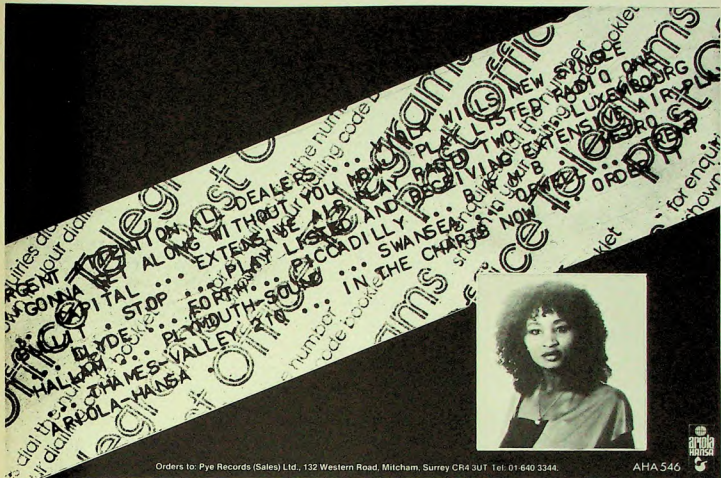 RGENT ... ATTENTION ALL DEALERS ... VIOLA WILLS NEW SINGLE
GONNA GET ALONG WITHOUT YOU NOW PLAY LISTED RADIO ONE
CAPITAL ... EXTENSIVE AIR PLAY RADIO TWO LUXEMBOURG
STOP ... PLAY LISTED AND RECEIVING EXTENSIVE AIR PLAY
CLYDE ... FORTH ... PICCADILLY ... B R M B METRO
HALLAM ... PLYMOUTH-SOUND ... SWANSEA ... ORWELL ... TRENT
... THAMES-VALLEY 210 ... IN THE CHARTS NOW ... ORDER IT
ARIOLA-HANSA
Post Office telegrams
Orders to: Pye Records (Sales) Ltd., 132 Western Road, Mitcham, Surrey CR4 3UT Tel: 01-640 3344.
AHA 546
ariola
HANSA